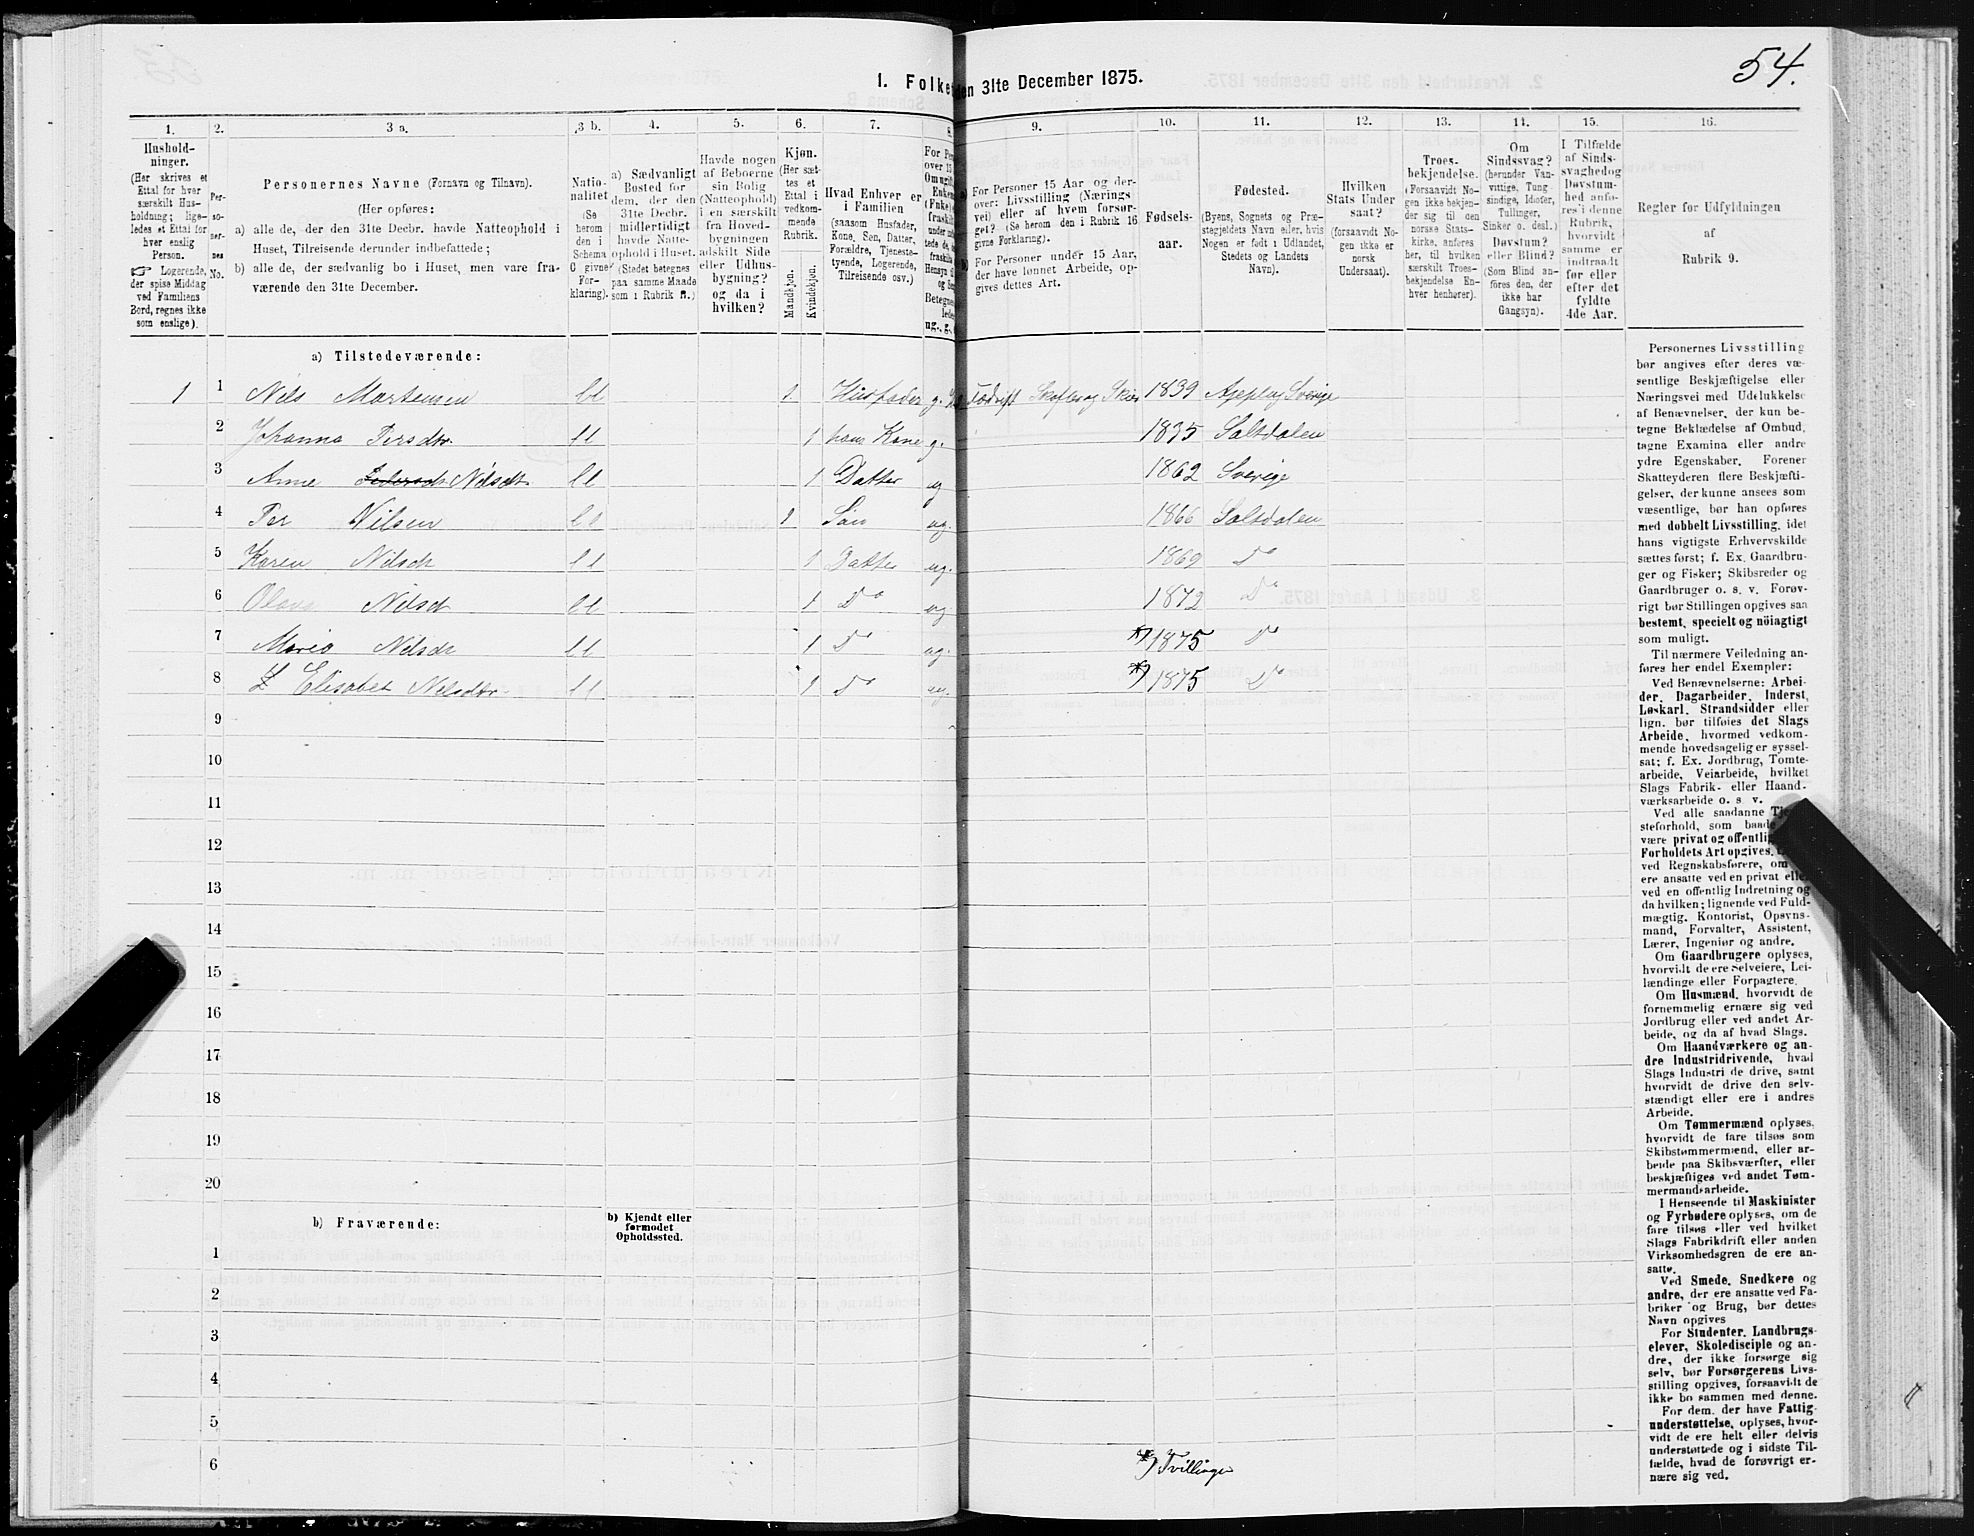 54.
1. Folke
den 31te December 1875.
1. 2. 3 a. 3 b. 4. 5. 6. 7. 8. 9. 10. 11. 12. 13. 14. 15. 16.
Hushold-
ninger.
(Her skrives et
Ettal for hver
særskilt Hus-
holdning; lige-
ledes et Ettal for
hver enslig
Person.
☞ Logerende,
der spise Middag
ved Familiens
Bord, regnes ikke
som enslige).
Per-
so-
ner-
nes
No.
Personernes Navne (Fornavn og Tilnavn).
(Her opføres:
a) alle de, der den 31te Decbr. havde Natteophold i
Huset, Tilreisende derunder indbefattede;
b) alle de, der sædvanlig bo i Huset, men vare fra-
værende den 31te December.
Natio-
nalitet
(Se
herom
den i
Schema
C givne
For-
klaring).
a) Sædvanligt
Bosted for
dem, der den
31te Decbr.
midlertidigt
havde Natte-
ophold i Huset.
(Stedet betegnes
paa samme Maade
som i Rubrik 11.)
Havde nogen
af Beboerne
sin Bolig
(Natteophold)
i en særskilt
fra Hoved-
bygningen
adskilt Side
eller Udhus-
bygning?
og da i
hvilken?
Kjøn.
(Her sæt-
tes et
Ettal i
vedkom-
mende
Rubrik.
Mandkjøn.
Kvindekjøn.
Hvad Enhver er
i Familien
(saasom Husfader,
Kone, Søn, Datter,
Forældre, Tjeneste-
tyende, Logerende,
Tilreisende osv.)
a) For Personer 15 Aar og der-
over: Livsstilling (Nærings
vei) eller af hvem forsør-
get? (Se herom den i Rubrik 16
givne Forklaring).
b) For Personer under 15 Aar,
der have lønnet Arbeide, op-
gives dettes Art.
Fødsels-
aar.
Fødested.
(Byens, Sognets og Præ-
stegjeldets Navn eller, hvis
Nogen er født i Udlandet,
Stedets og Landets
Navn).
Hvilken
Stats Under
saat?
(forsaavidt No-
gen ikke er
norsk
Undersaat).
Troes-
bekjendelse.
(Forsaavidt No-
gen ikke bekjen-
der sig til den
norske Stats-
kirke, anføres
her, til hvilken
særskilt Troes-
bekjendelse En-
hver henhører).
Om
Sindssvag?
(herunder Van-
vittige, Tung
sindige, Idioter,
Tullinger,
Sinker o. desl.)
Døvstum?
eller Blind?
(Som Blind an-
føres den, der
ikke har
Gangsyn).
I Tilfælde
af Sinds-
svaghed og
Døvstum-
hed anfø-
res i denne
Rubrik,
hvorvidt
samme er
indtraadt
før eller
efter det
fyldte
4de Aar.
Regler for Udfyldningen
af
Rubrik 9.
a) Tilstedeværende:
1 1 Nils Mortensen ll 1 Husfader g. 1839 Sverige
2 Johanna Persdtr ll 1 hans Kone g. 1835 Saltdalen
3 Anne Nilsdt. ll 1 Datter ug 1862 Sverige
4 Per Nilsen ll 1 Søn ug. 1866 Saltdalen
5 Karen Nilsdt ll 1 Datter ug. 1869 Do
6 Olava Nilsdt ll 1 Do ug 1872 Do
7 Maria Nilsdt ll 1 Do ug. *) 1875 Do
8 Elisabet Nilsdtr ll 1 Do ug. *) 1875 Do
9
10
11
12
13
14
15
16
17
18
19
20
b) Fraværende:
b) Kjendt eller
formodet
Opholdssted.
1
2
3
4
5
6
*) Tvillinger
Personernes Livsstilling
bør angives efter deres væ-
sentlige Beskjæftigelse eller
Næringsvei med Udelukkelse
af Benævnelser, der kun be-
tegne Beklædelse af Ombud,
tagne Examina eller andre
ydre Egenskaber. Forener
Skatteyderen flere Beskjæfti-
gelser, der kunne ansees som
væsentlige, bør han opføres
med dobbelt Livsstilling, idet
hans vigtigste Erhvervskilde
sættes først; f. Ex. Gaardbru-
ger og Fisker; Skibsreder og
Gaardbruger o. s. v. Forøv-
rigt bør Stillingen opgives saa
bestemt, specielt og nöiagtigt
som muligt.
Til nærmere Veiledning an-
føres her endel Exempler:
Ved Benævnelserne: Arbei-
der, Dagarbeider, Inderst,
Løskarl, Strandsidder eller
lign. bør tilføies det Slags
Arbeide, hvormed vedkom-
mende hovedsagelig er syssel-
sat; f. Ex. Jordbrug, Tomte-
arbeide, Veiarbeide, hvilket
Slags Fabrik- eller Haand-
værksarbeide o. s. v.
Ved alle saadanne
steforhold, som baade
være privat og offentlig
Forholdets Art opgives.
ved Regnskabsførere, om
ere ansatte ved en privat eller
ved en offentlig Indretning og
da hvilken; lignende ved Fuld-
mægtig, Kontorist, Opsyns-
mand, Forvalter, Assistent,
Lærer, Ingeniør og andre.
Om Gaardbrugere oplyses,
hvorvidt de ere Selveiere, Lei-
lændinge eller Forpagtere.
Om Husmænd, hvorvidt de
fornemmelig ernære sig ved
Jordbrug eller ved andet Ar-
beide, og da af hvad Slags.
Om Haandværkere og an-
dre Industridrivende, hvad
Slags Industri de drive, samt
hvorvidt de drive den selv-
stændigt eller ere i andres
Arbeide.
Om Tømmermænd oplyses,
hvorvidt de fare tilsøs som
Skibstømmermænd, eller ar-
beide paa Skibsværfter, eller
beskjæftiges ved andet Tøm-
mermandsarbeide.
I Henseende til Maskinister
og Fyrbødere oplyses, om de
fare tilsøs eller ved hvilket
Slags Fabrikdrift eller anden
Virksomhedsgren de ere an-
satte.
Ved Smede, Snedkere og
andre, der ere ansatte ved Fa-
briker og Brug, bør dettes
Navn opgives
For Studenter, Landbrugs-
elever, Skoledisciple og an-
dre, der ikke forsørge sig
selv, bør Forsørgerens Livs-
stilling opgives, forsaavidt de
ikke bo sammen med denne.
For dem, der have Fattig-
understøttelse, oplyses, hvor-
vidt de ere helt eller delvis
understøttede og i sidste Til-
fælde, hvad de forøvrigt er-
nære sig ved.